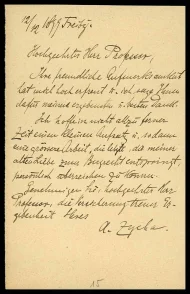 12/12 1899
Hochgeehrter Herr Professor,
Ihre freundliche Aufmerksamkeit
hat mich hoch erfreut u. ich sage Ihnen
dafür meinen ergebensten u. besten Dank.
Ich hoffe in nicht allzu ferner
Zeit einen kleinen Aufsatz u. sodann
eine grössere Arbeit, die letzte, die meiner
alten Liebe zum Bergrecht entspringt,
persönlich überreichen zu können.
Genehmigen Sie, hochgeehrter Herr
Professor, die Versicherung steter Er-
gebenheit Ihres
A. Zycha
15